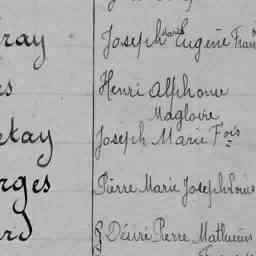 ray Joseph Marie Eugène Fran
es Henri Alphonse
Magloire
etay Joseph Marie Fois
rges Pierre Marie Joseph Louis
ard Désiré Pierre Mathurin